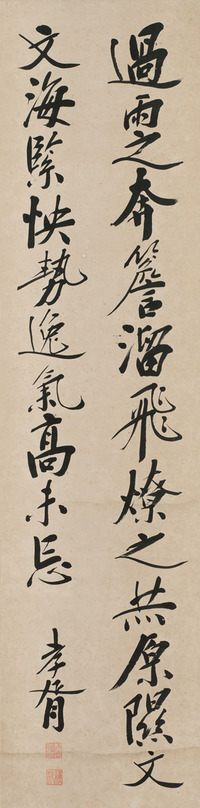 過雨之奔簷溜飛燎之原隰文
文海緊快勢逸氣高未忘
孝胥